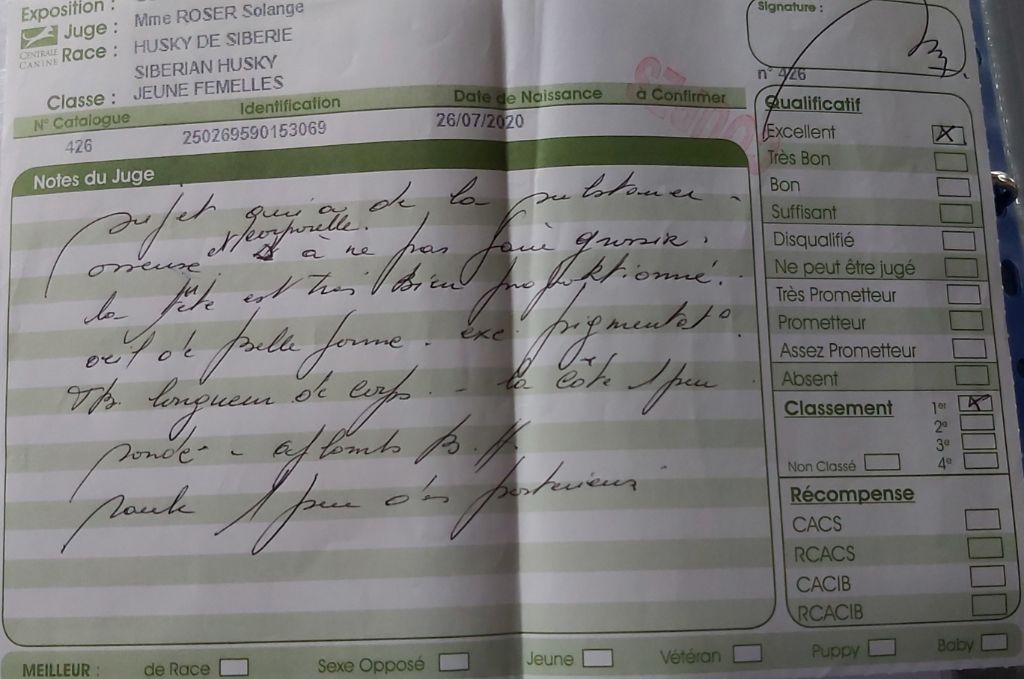 Exposition :
Signature :
Juge : Mme ROSER Solange
CENTRALE CANINE
Race : HUSKY DE SIBERIE
SIBERIAN HUSKY
Classe : JEUNE FEMELLES
n° 426
N° Catalogue Identification Date de Naissance à Confirmer
426 250269590153069 26/07/2020
Notes du Juge
sujet qui a de la substance
osseuse et corporelle. à ne pas faire grossir.
la tête est très bien proportionné.
œil de belle forme. exc. pigmentat°
TB. longueur de corps. - la côte 1 peu
ronde - aplombs B.
1 peu des postérieurs
Qualificatif
Excellent X
Très Bon
Bon
Suffisant
Disqualifié
Ne peut être jugé
Très Prometteur
Prometteur
Assez Prometteur
Absent
Classement 1er X
2e
3e
Non Classé 4e
Récompense
CACS
RCACS
CACIB
RCACIB
MEILLEUR : de Race Sexe Opposé Jeune Vétéran Puppy Baby